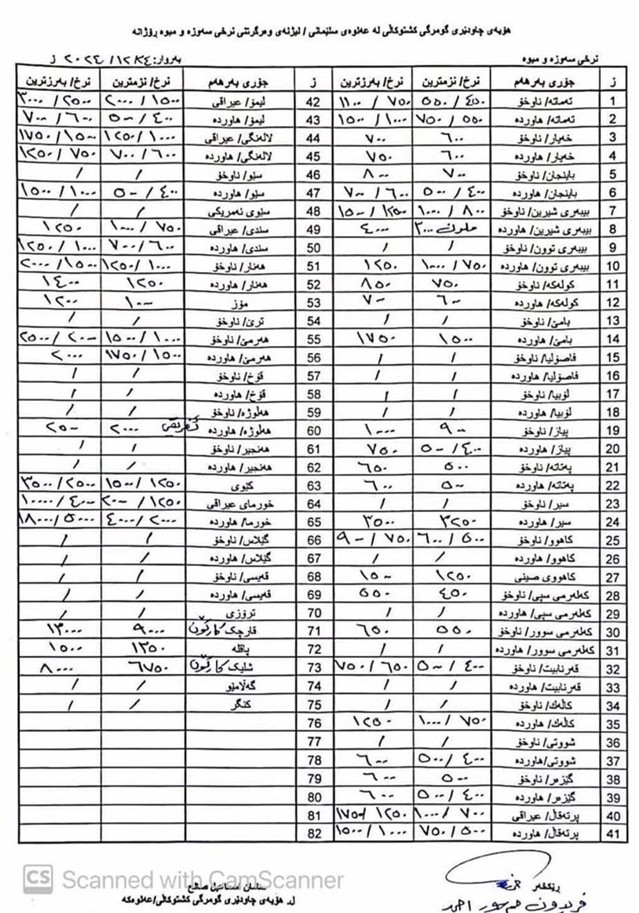 هۆبەی چاودێری گومرگی کشتوکاڵی لە عەلوەی سلێمانی / لیژنەی وەرگرتنی نرخی سەوزە و میوە ڕۆژانە
نرخی سەوزە و میوە بەروار: ٢٠٢٤/١٢/٤ ز
ز جۆری بەرهەم نرخ/ نزمترین نرخ/بەرزترین ز جۆری بەرهەم نرخ/ نزمترین نرخ/بەرزترین
1 تەماتە/ ناوخۆ ٤٥٠ / ٥٥٠ ٧٥٠ / ١١٠٠ 42 لیمۆ/ عیراقی ١٥٠٠ / ٢٠٠٠ ٢٥٠٠ / ٣٠٠٠
2 تەماتە/ هاوردە ٥٥٠ / ٧٥٠ ١٠٠٠ / ١٥٠٠ 43 لیمۆ/ هاوردە ٤٠٠ / ٥٠٠ ٦٠٠ / ٧٠٠
3 خەیار/ ناوخۆ ٦٠٠ ٧٠٠ 44 لالەنگی/ عیراقی ١٠٠٠ / ١٢٥٠ ١٥٠٠ / ١٧٥٠
4 خەیار/ هاوردە ٦٠٠ ٧٥٠ 45 لالەنگی/ هاوردە ٦٠٠ / ٧٠٠ ٧٥٠ / ١٢٥٠
5 باینجان/ ناوخۆ ٧٠٠ ٨٠٠ 46 سێو/ ناوخۆ / /
6 باینجان/ هاوردە ٤٠٠ / ٥٠٠ ٦٠٠ / ٧٠٠ 47 سێو/ هاوردە ٤٠٠ / ٥٠٠ ١٠٠٠ / ١٥٠٠
7 بیبەری شیرین/ ناوخۆ ٨٠٠ / ١٠٠٠ ١٢٥٠ / ١٥٠٠ 48 سێوی ئەمریکی / /
8 بیبەری شیرین/ هاوردە ٣٠٠٠ ٤٠٠٠ 49 سندی/ عیراقی ٧٥٠ / ١٠٠٠ ١٢٥٠
9 بیبەری توون/ ناوخۆ / / 50 سندی/ هاوردە ٦٠٠ / ٧٠٠ ١٠٠٠ / ١٢٥٠
10 بیبەری توون/ هاوردە ٧٥٠ / ١٠٠٠ ١٢٥٠ 51 هەنار/ ناوخۆ ١٠٠٠ / ١٢٥٠ ١٥٠٠ / ٢٠٠٠
11 کولەکە/ ناوخۆ ٧٥٠ ٨٥٠ 52 هەنار/ هاوردە ١٢٥٠ ١٤٠٠
12 کولەکە/ هاوردە ٦٠٠ ٧٠٠ 53 مۆز ١٠٠٠ ١٢٠٠
13 بامێ/ ناوخۆ / / 54 ترێ/ ناوخۆ / /
14 بامێ/ هاوردە ١٥٠٠ ١٧٥٠ 55 هەرمێ/ ناوخۆ ١٠٠٠ / ١٥٠٠ ٢٠٠٠ / ٢٥٠٠
15 فاصۆلیا/ ناوخۆ / / 56 هەرمێ/ هاوردە ١٥٠٠ / ١٧٥٠ ٢٠٠٠
16 فاصۆلیا/ هاوردە / / 57 قۆخ/ ناوخۆ / /
17 لۆبیا/ ناوخۆ / / 58 قۆخ/ هاوردە / /
18 لۆبیا/ هاوردە / / 59 هەلوژە/ ناوخۆ / /
19 پیاز/ ناوخۆ ٩٠٠ ١٠٠٠ 60 هەلوژە/ هاوردە ٢٠٠٠ ٢٥٠٠
20 پیاز/ هاوردە ٤٠٠ / ٥٠٠ ٧٥٠ 61 هەنجیر/ ناوخۆ / /
21 پەتاتە/ ناوخۆ ٥٠٠ ٦٥٠ 62 هەنجیر/ هاوردە / /
22 پەتاتە/ هاوردە ٥٠٠ ٦٠٠ 63 کێوی ١٢٥٠ / ١٥٠٠ ٢٥٠٠ / ٣٥٠٠
23 سیر/ ناوخۆ / / 64 خورمای عیراقی ١٢٥٠ / ٢٠٠٠ ٤٠٠٠ / ١٠٠٠٠
24 سیر/ هاوردە ٣٢٥٠ ٣٥٠٠ 65 خورما/ هاوردە ٢٠٠٠ / ٤٠٠٠ ٥٠٠٠ / ١٨٠٠٠
25 کاهوو/ ناوخۆ ٥٠٠ / ٦٠٠ ٧٥٠ / ٩٠٠ 66 گێلاس/ ناوخۆ / /
26 کاهوو/ هاوردە / / 67 گێلاس/ هاوردە / /
27 کاهووی صینی ١٢٥٠ ١٥٠٠ 68 قەیسی/ ناوخۆ / /
28 کەلەرمی سپی/ ناوخۆ ٤٥٠ ٥٥٠ 69 قەیسی/ هاوردە / /
29 کەلەرمی سپی/ هاوردە / / 70 ترۆزی / /
30 کەلەرمی سوور/ ناوخۆ ٥٥٠ ٦٥٠ 71 قارچک کارتۆن ٩٠٠٠ ١٣٠٠٠
31 کەلەرمی سوور/ هاوردە / / 72 پاقلە ١٣٥٠ ١٥٠٠
32 قەرنابیت/ ناوخۆ ٤٠٠ / ٥٠٠ ٦٥٠ / ٧٥٠ 73 شلیک کارتۆن ٦٧٥٠ ٨٠٠٠
33 قەرنابیت/ هاوردە / / 74 گەلامێو / /
34 کاڵەک/ ناوخۆ / / 75 کنگر / /
35 کاڵەک/ هاوردە ٧٥٠ / ١٠٠٠ ١٢٥٠ 76
36 شووتی/ ناوخۆ / / 77
37 شووتی/هاوردە ٤٠٠ / ٥٠٠ ٦٠٠ 78
38 گێزەر/ ناوخۆ ٥٠٠ ٦٠٠ 79
39 گێزەر/ هاوردە ٤٠٠ / ٥٠٠ ٦٠٠ 80
40 پرتەقاڵ/ عیراقی ٧٠٠ / ١٠٠٠ ١٢٥٠ / ١٧٥٠ 81
41 پرتەقاڵ/ هاوردە ٥٠٠ / ٧٥٠ ١٠٠٠ / ١٥٠٠ 82
CS Scanned with CamScanner
ڕێکفەر
فریدون احمد
ل. هۆبەی چاودێری گومرگی کشتوکاڵی/ عەلوەکە